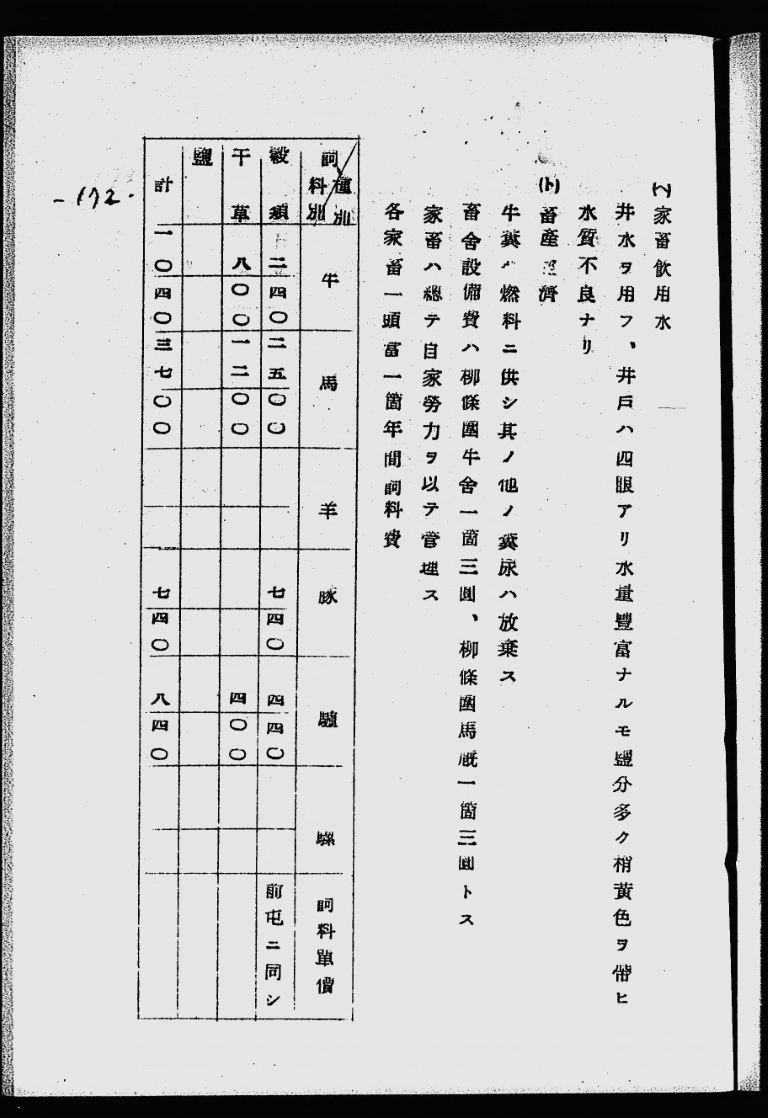 (ヘ)家畜飲用水
井水ヲ用フ、井戸ハ四眼アリ水量豐富ナルモ鹽分多ク稍黄色ヲ帶ヒ
水質不良ナリ
(ト)畜産經濟
牛糞ハ燃料ニ供シ其ノ他ノ糞尿ハ放棄ス
畜舍設備費ハ柳條圍牛舍一箇三圓、柳條圍馬厩一箇三圓トス
家畜ハ總テ自家勞力ヲ以テ管理ス
各家畜一頭當一箇年間飼料費
種別 飼料別 牛 馬 羊 豚 驢 騾 飼料單價
穀類 二四〇 二五〇〇 七四〇 四四〇 前屯ニ同シ
干草 八〇〇 一二〇〇 四〇〇
鹽
計 一〇四〇 三七〇〇 七四〇 八四〇
-172-